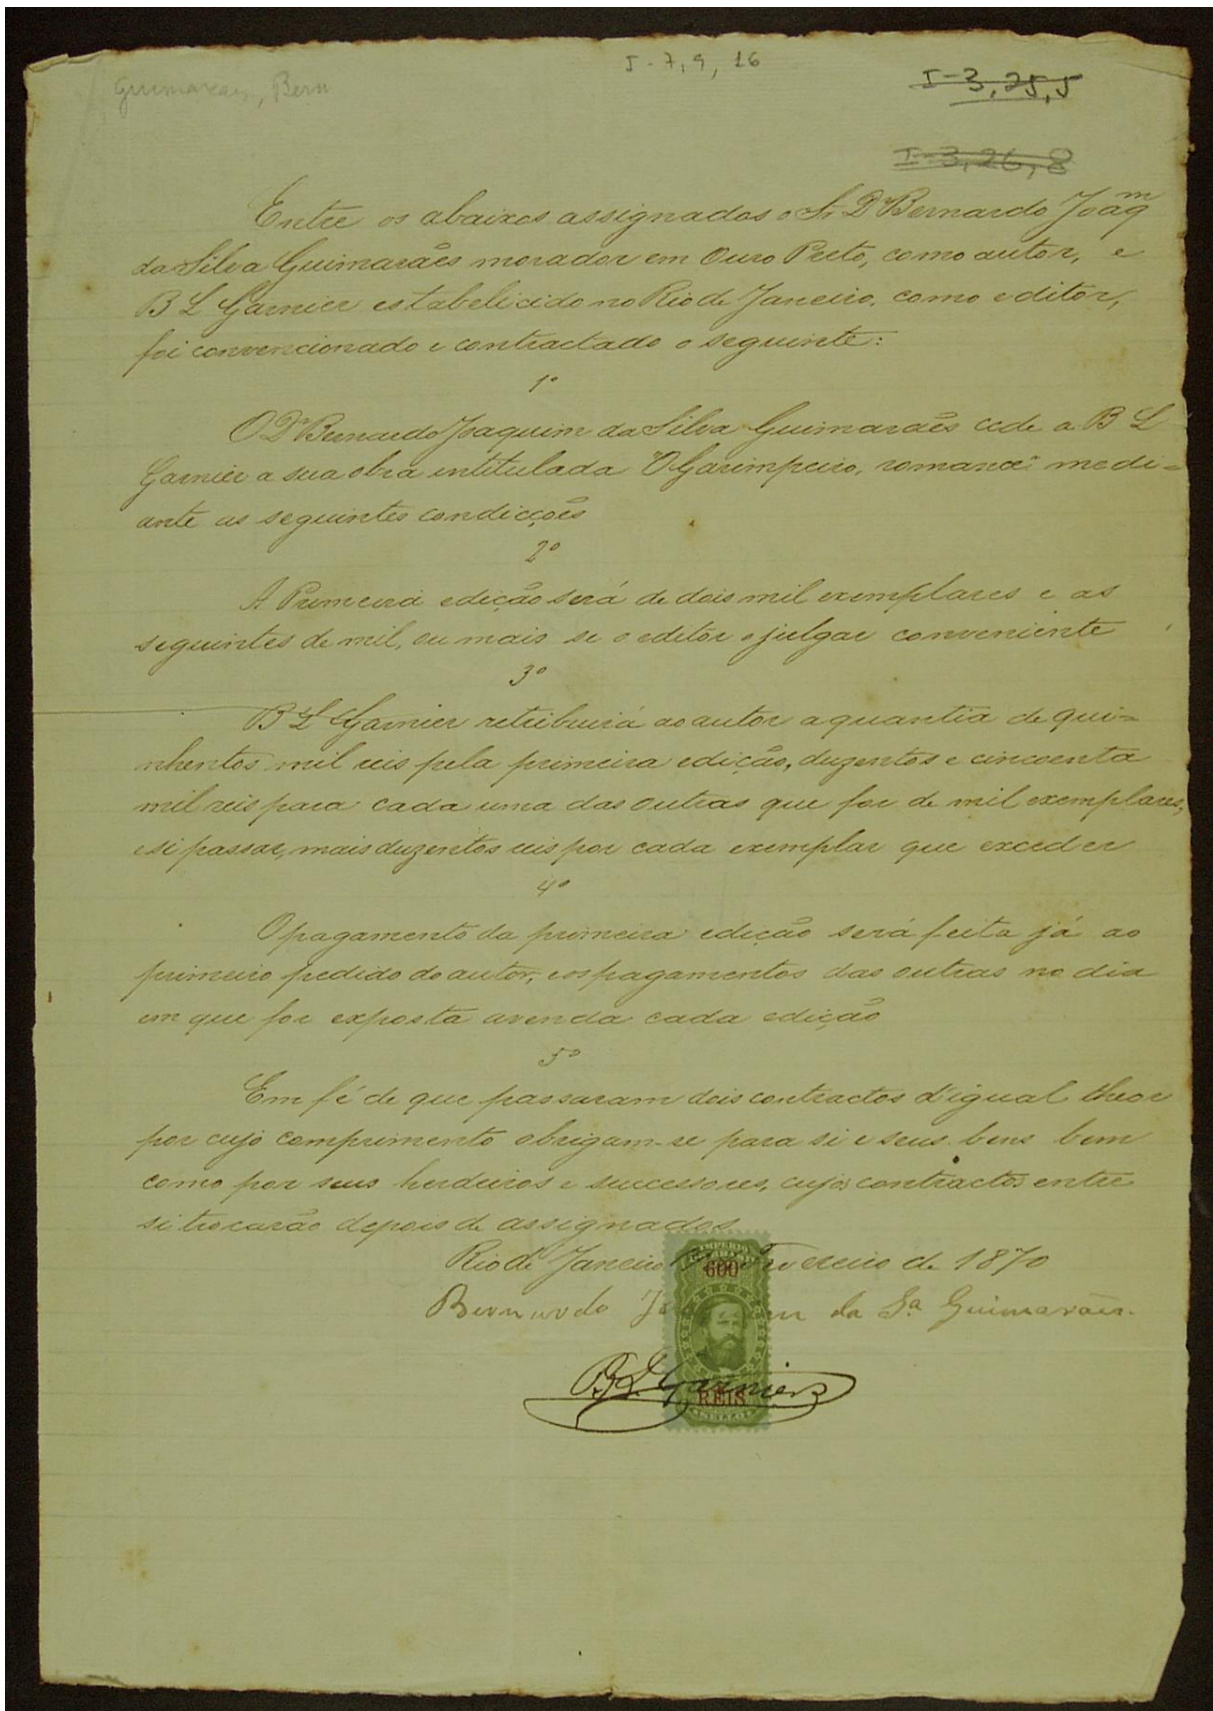 Guimarães, Bern
I-7,9,16
I-3,25,5
I-3,26,8
Entre os abaixos assignados o Sr. Dr Bernardo Joaqm
da Silva Guimarães morador em Ouro Preto, como autor, e
B L Garnier estabelicido no Rio de Janeiro, como editor,
foi convencionado e contractado o seguinte:
1º
O Dr Bernardo Joaquim da Silva Guimarães cede a B L
Garnier a sua obra intitulada "O Garimpeiro, romance" medi=
ante as seguintes condicções
2º
A Primeira edição será de dois mil exemplares e as
seguintes de mil, ou mais se o editor o julgar conveniente
3º
B L Garnier retribuirá ao autor a quantia de qui=
nhentos mil reis pela primeira edição, duzentos e cincoenta
mil reis para cada uma das outras que for de mil exemplares,
e si passar, mais duzentos reis por cada exemplar que exceder
4º
O pagamento da primeira edição será feita já ao
primeiro pedido do autor, e os pagamentos das outras no dia
em que for exposta a venda cada edição
5º
Em fé de que passaram dois contractos d'igual theor
por cujo comprimento obrigam-se para si e seus bens bem
como por seus herdeiros e successores, cujos contractos entre
si trocarão depois de assignados
Rio de Janeiro Fevereiro de 1870
IMPERIO
DO BRASIL
600
Bernardo Joaquim da Sa Guimarães.
B. L. Garnier
REIS
SELLO